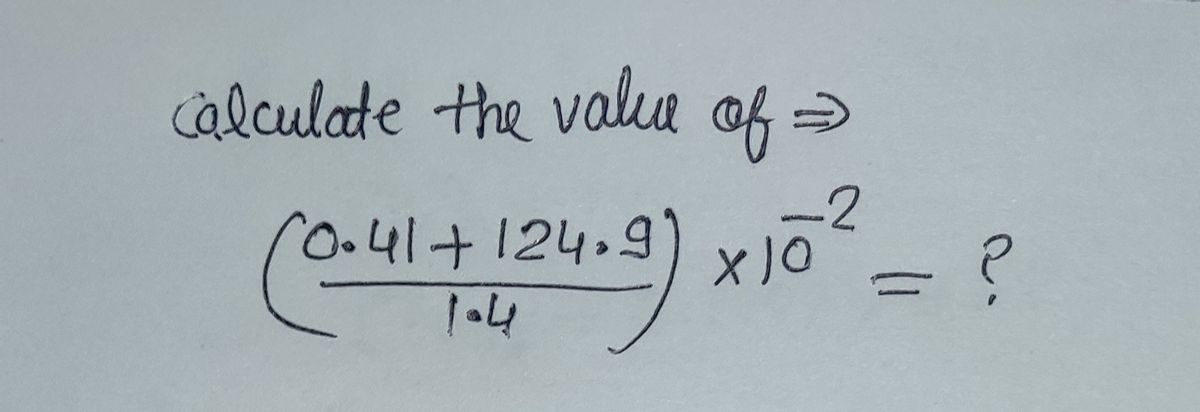 calculate the value of ⇒
(0.41 + 124.9 / 1.4) × 10⁻² = ?